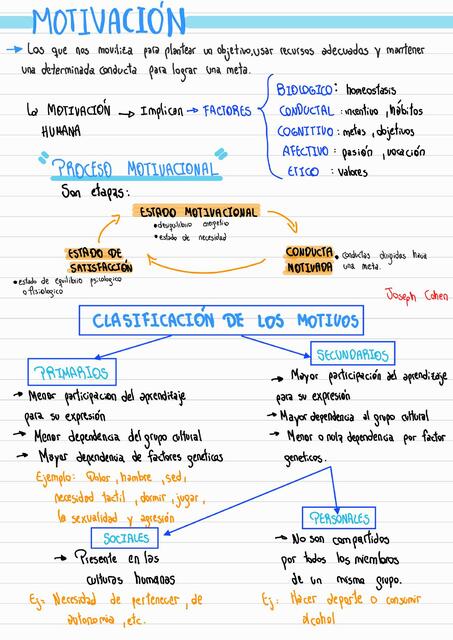 MOTIVACIÓN
→ Los que nos moviliza para plantear un objetivo, usar recursos adecuados y mantener
una determinada conducta para lograr una meta.
La MOTIVACIÓN → Implican → FACTORES
HUMANA
BIOLOGICO: homeostasis
CONDUCTAL: incentivo, hábitos
COGNITIVO: metas, objetivos
AFECTIVO: pasión, vocación
ETICO: valores
"PROCESO MOTIVACIONAL"
Son etapas:
ESTADO MOTIVACIONAL
• desequilibrio energetico
• estado de necesidad
ESTADO DE
SATISFACCIÓN
• estado de equilibrio psicologico
o fisiologico
CONDUCTA
MOTIVADA
• conductas dirigidas hacia
una meta.
Joseph Cohen
CLASIFICACIÓN DE LOS MOTIVOS
PRIMARIOS
→ Menor participacion del aprendizaje
para su expresión
→ Menor dependencia del grupo cultural
→ Mayor dependencia de factores geneticos
Ejemplo: Dolor, hambre, sed,
necesidad tactil, dormir, jugar,
la sexualidad y agresión
SECUNDARIOS
→ Mayor participación del aprendizaje
para su expresión
→ Mayor dependencia al grupo cultural
→ Menor o nula dependencia por factor
geneticos.
SOCIALES
→ Presente en las
culturas humanas
Ej= Necesidad de pertenecer, de
autonomia, etc.
PERSONALES
→ No son compartidos
por todos los miembros
de un mismo grupo.
Ej: Hacer deporte o consumir
alcohol